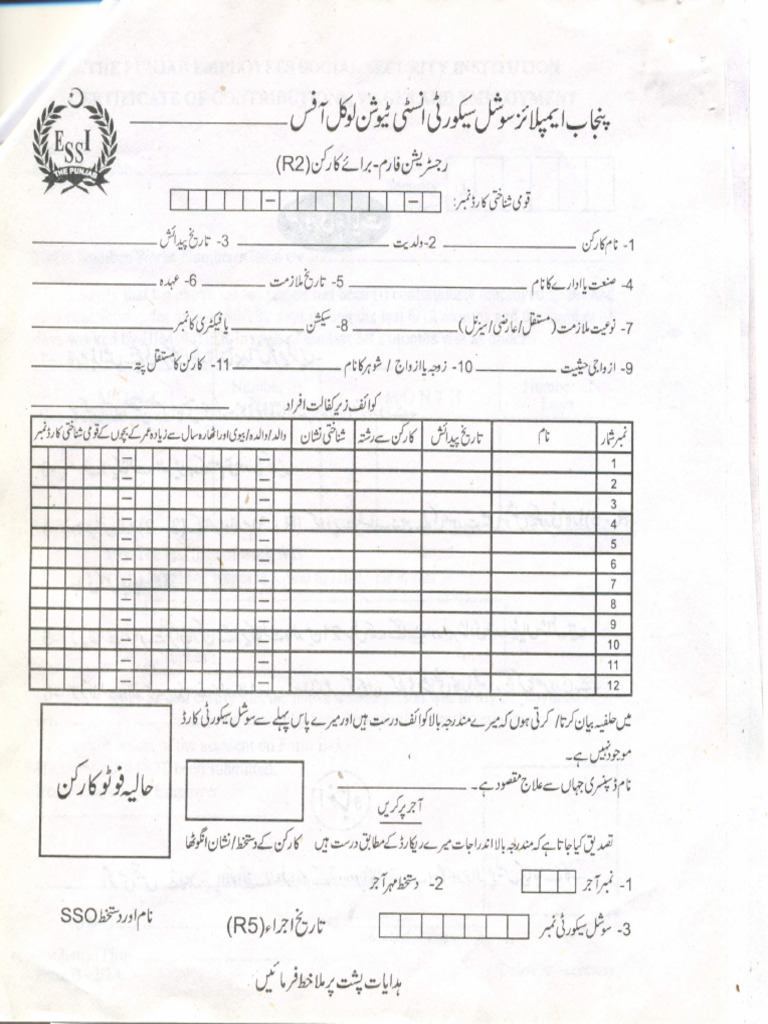 پنجاب ایمپلائز سوشل سیکورٹی انسٹی ٹیوشن لوکل آفس
ESSI
THE PUNJAB
رجسٹریشن فارم - برائے کارکن (R2)
قومی شناختی کارڈ نمبر:
1- نام کارکن 2- ولدیت 3- تاریخ پیدائش
4- صنعت یا ادارے کا نام 5- تاریخ ملازمت 6- عہدہ
7- نوعیت ملازمت (مستقل / عارضی / سیزنل) 8- سیکشن یا فیکٹری کا نمبر
9- ازواجی حیثیت 10- زوجہ یا ازواج / شوہر کا نام 11- کارکن کا مستقل پتہ
کوائف زیر کفالت افراد
نمبر شمار نام تاریخ پیدائش کارکن سے رشتہ شناختی نشان والد / والدہ / بیوی اور اٹھارہ سال سے زیادہ عمر کے بچوں کے قومی شناختی کارڈ نمبر
1
2
3
4
5
6
7
8
9
10
11
12
میں حلفیہ بیان کرتا / کرتی ہوں کہ میرے مندرجہ بالا کوائف درست ہیں اور میرے پاس پہلے سے سوشل سیکورٹی کارڈ
موجود نہیں ہے۔
نام ڈسپنسری جہاں سے علاج مقصود ہے۔
حالیہ فوٹو کارکن
آجر پر کریں
تصدیق کیا جاتا ہے کہ مندرجہ بالا اندراجات میرے ریکارڈ کے مطابق درست ہیں کارکن کے دستخط / نشان انگوٹھا
1- نمبر آجر 2- دستخط مہر آجر
3- سوشل سیکورٹی نمبر تاریخ اجراء (R5) نام اور دستخط SSO
ہدایات پشت پر ملاحظ فرمائیں